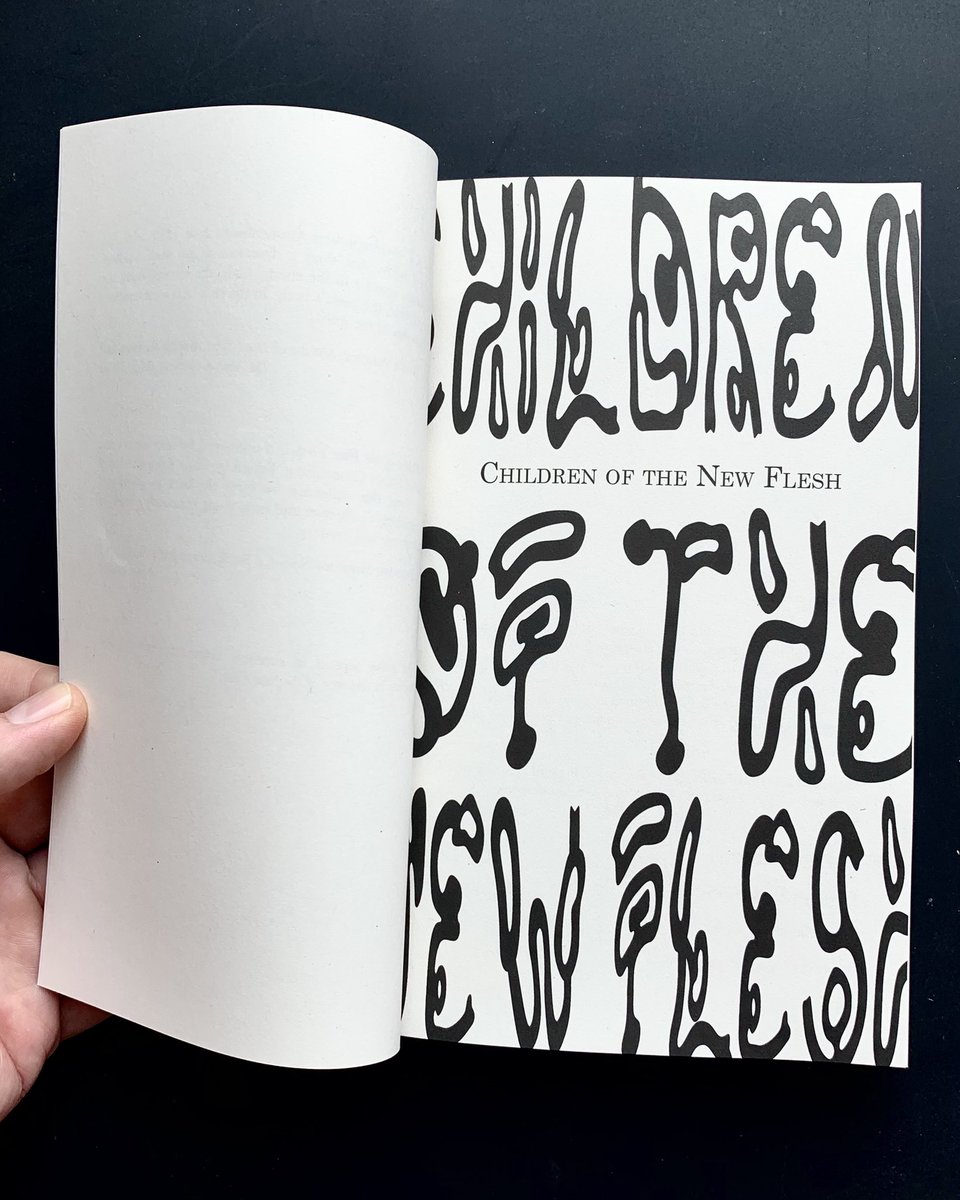 CHILDREN
CHILDREN OF THE NEW FLESH
OF THE
NEW FLESH